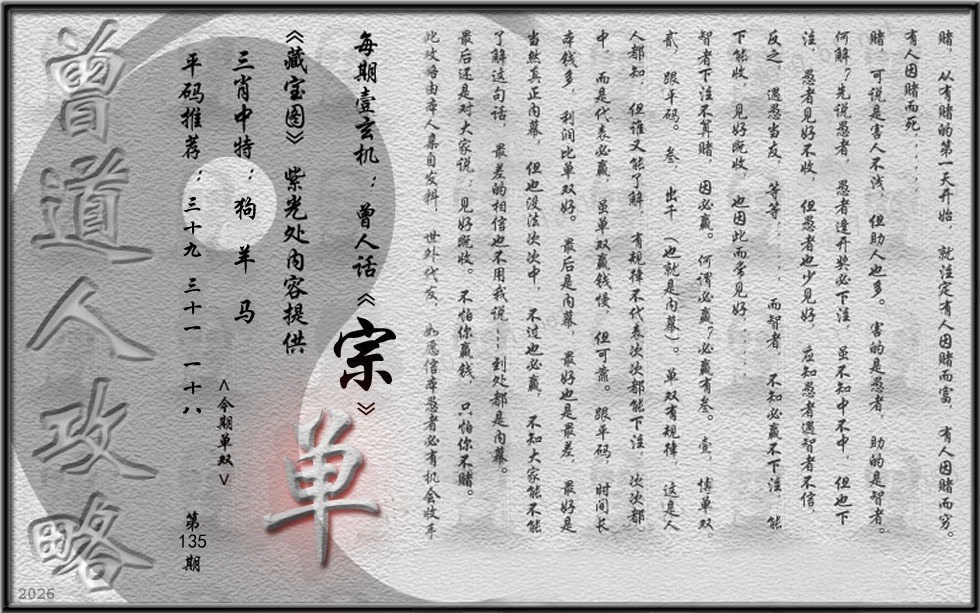 赌，从有赌的第一天开始，就注定有人因赌而富，有人因赌而穷。
有人因赌而死......
赌，可说是害人不浅，但助人也多。害的是愚者，助的是智者。
何解？先说愚者，愚者逢开奖必下注，虽不知中不中，但也下
注，愚者见好不收，但愚者也少见好，应知愚者遇智者不信，
反之，遇愚当友，等等......而智者，不知必赢不下注，能
下能收，见好既收，也因此而常见好....
智者下注不算赌，因必赢。何谓必赢？必赢有叁。壹，博单双
贰，跟平码。叁，出千（也就是内幕）。单双有规律，这是人
人都知，但谁又能了解，有规律不代表次次都能下注，次次都
中，而是代表必赢，虽单双赢钱慢，但可靠。跟平码，时间长
本钱多，利润比单双好。最后是内幕，最好也是最差，最好是
当然真正内幕，但也没法次次中，不过也必赢，不知大家能不能
了解这句话，最差的相信也不用我说...到处都是内幕。
最后还是对大家说：见好既收。不怕你赢钱，只怕你不赌。
此攻略由本人集自发料，世外代友，如愿信本愚者必有机会收手
每期壹玄机：曾人话《宗》
《藏宝图》紫光处内容提供
三肖中特：狗 羊 马
平码推荐：三十九 三十一 一十八
<今期单双>
单
第135期
曾道人攻略
2026